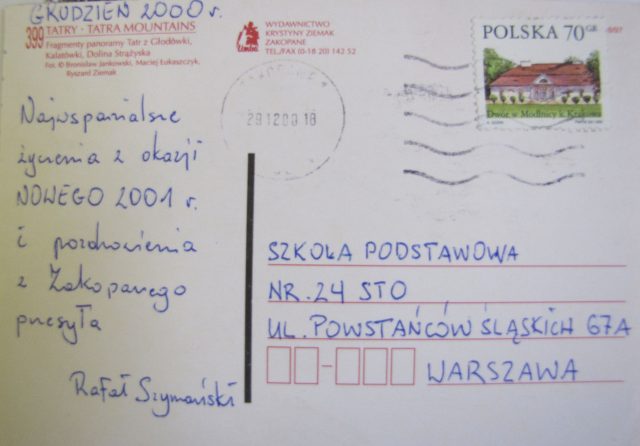 GRUDZIEŃ 2000 r.
399 TATRY - TATRA MOUNTAINS
Fragmenty panoramy Tatr z Głodówki,
Kalatówki, Dolina Strążyska
Fot. © Bronisław Jankowski, Maciej Łukaszczyk,
Ryszard Ziemak
WYDAWNICTWO
KRYSTYNY ZIEMAK
ZAKOPANE
TEL./FAX (0-18 20) 142 52
POLSKA 70 GR
Dwór w Modlnicy k. Krakowa
28 12 00 18
Najwspanialsze
życzenia z okazji
NOWEGO 2001 r.
i pozdrowienia
z Zakopanego
przesyła
Rafał Szymański
SZKOŁA PODSTAWOWA
NR. 24 STO
UL. POWSTAŃCÓW ŚLĄSKICH 67A
WARSZAWA